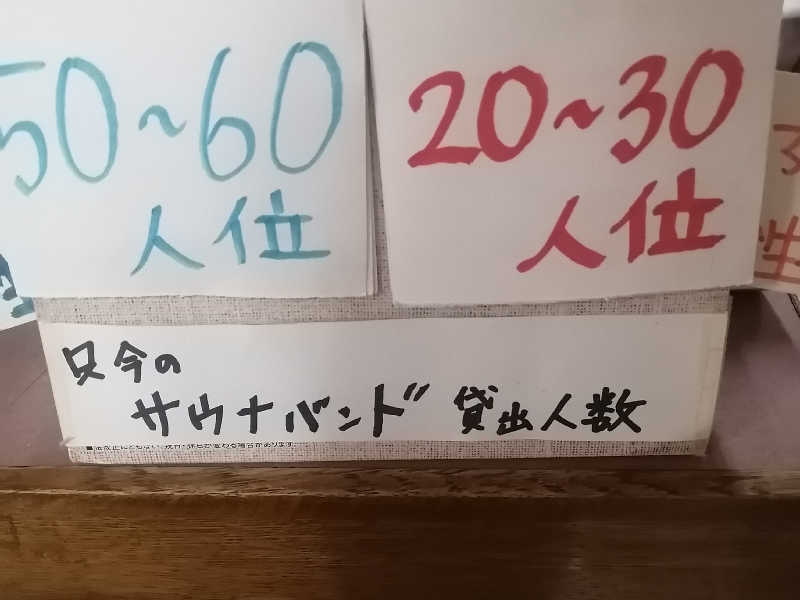 50~60
人位
20~30
人位
性
只今の
サウナバンド 貸出人数